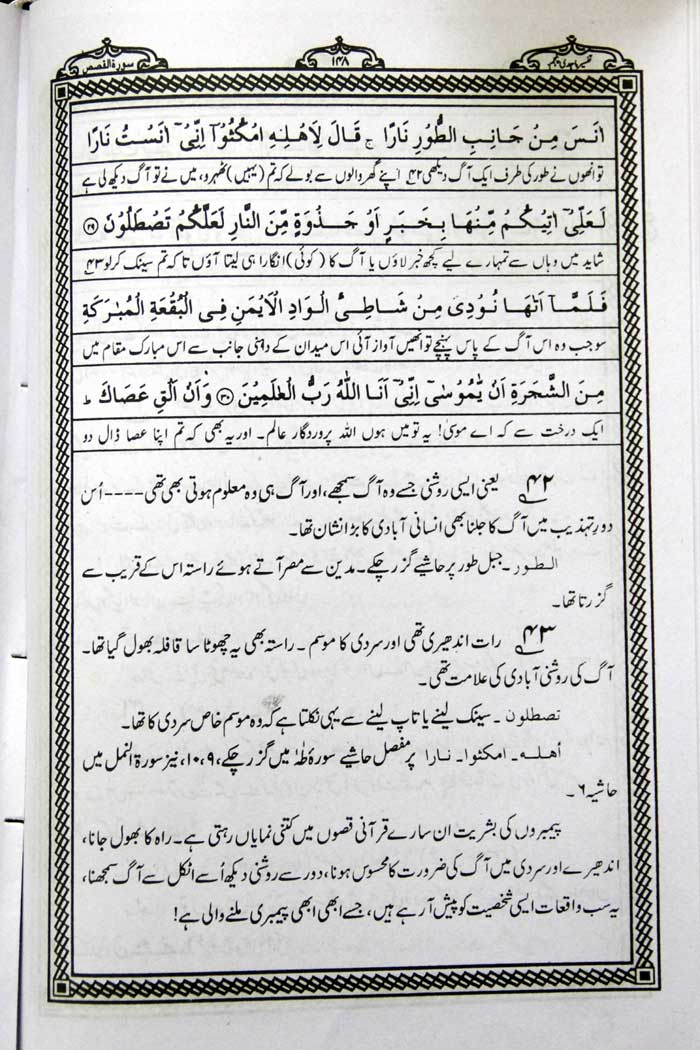 تفسیر ماجدی پنجم
۱۴۸
سورۃ القصص
اٰنَسَ مِنْ جَانِبِ الطُّوْرِ نَارًا ج قَالَ لِاَهْلِهِ امْكُثُوْۤا اِنِّیْۤ اٰنَسْتُ نَارًا
تو انھوں نے طور کی طرف ایک آگ دیکھی ۴۲ اپنے گھر والوں سے بولے کہ تم (یہیں) ٹھہرو، میں نے تو آگ دیکھ لی ہے
لَعَلِّیْۤ اٰتِیْكُمْ مِّنْهَا بِخَبَرٍ اَوْ جَذْوَةٍ مِّنَ النَّارِ لَعَلَّكُمْ تَصْطَلُوْنَ ۲۹
شاید میں وہاں سے تمہارے لیے کچھ خبر لاؤں یا آگ کا (کوئی) انگارا ہی لیتا آؤں تا کہ تم سینک کر لو ۴۳
فَلَمَّاۤ اَتٰهَا نُوْدِیَ مِنْ شَاطِیِٔ الْوَادِ الْاَیْمَنِ فِی الْبُقْعَةِ الْمُبٰرَكَةِ
سو جب وہ اس آگ کے پاس پہنچے تو انھیں آواز آئی اس میدان کے داہنی جانب سے اس مبارک مقام میں
مِنَ الشَّجَرَةِ اَنْ یّٰمُوْسٰۤی اِنِّیْۤ اَنَا اللّٰهُ رَبُّ الْعٰلَمِیْنَ ۳۰ وَ اَنْ اَلْقِ عَصَاكَ ط
ایک درخت سے کہ اے موسیٰ! یہ تو میں ہوں اللہ پروردگار عالم۔ اور یہ بھی کہ تم اپنا عصا ڈال دو
۴۲ یعنی ایسی روشنی جسے وہ آگ سمجھے، اور آگ ہی وہ معلوم ہوتی بھی تھی ---- اُس
دورِ تہذیب میں آگ کا جلنا بھی انسانی آبادی کا بڑا نشان تھا۔
الطور۔ جبل طور پر حاشیے گزر چکے۔ مدین سے مصر آتے ہوئے راستہ اس کے قریب سے
گزرتا تھا۔
۴۳ رات اندھیری تھی اور سردی کا موسم۔ راستہ بھی یہ چھوٹا سا قافلہ بھول گیا تھا۔
آگ کی روشنی آبادی کی علامت تھی۔
تصطلون۔ سینک لینے یا تاپ لینے سے یہی نکلتا ہے کہ وہ موسم خاص سردی کا تھا۔
أهله۔ امکثوا۔ نارا پر مفصل حاشیے سورۂ طٰہٰ میں گزر چکے، ۹، ۱۰، نیز سورۃ النمل میں
حاشیہ ۶۔
پیمبروں کی بشریت ان سارے قرآنی قصوں میں کتنی نمایاں رہتی ہے۔ راہ کا بھول جانا،
اندھیرے اور سردی میں آگ کی ضرورت کا محسوس ہونا، دور سے روشنی دیکھ اُسے اٹکل سے آگ سمجھنا،
یہ سب واقعات ایسی شخصیت کو پیش آ رہے ہیں، جسے ابھی ابھی پیمبری ملنے والی ہے!